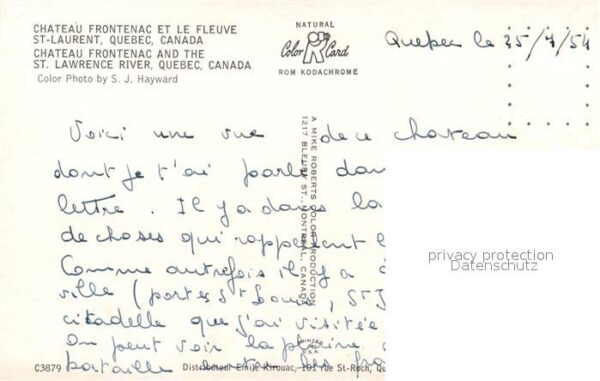 CHATEAU FRONTENAC ET LE FLEUVE
ST-LAURENT, QUEBEC, CANADA
CHATEAU FRONTENAC AND THE
ST. LAWRENCE RIVER, QUEBEC, CANADA
Color Photo by S. J. Hayward
NATURAL
Color Card
ROM KODACHROME
Quebec le 25/7/54
Voici une vue de ce chateau
dont je t'ai parlé dan
lettre. Il y a dans la
de choses qui rappellent l
Comme autrefois il y a
ville (portes St Louis, St J
citadelle que j'ai visitée
On peut voir la plaine
bataille entre les fra
A MIKE ROBERTS COLOR PRODUCTION
1217 BLEURY ST., MONTREAL, CANADA
privacy protection
Datenschutz
C3879
Distributeur Emile Kirouac, 101 rue St-Roch, Qu